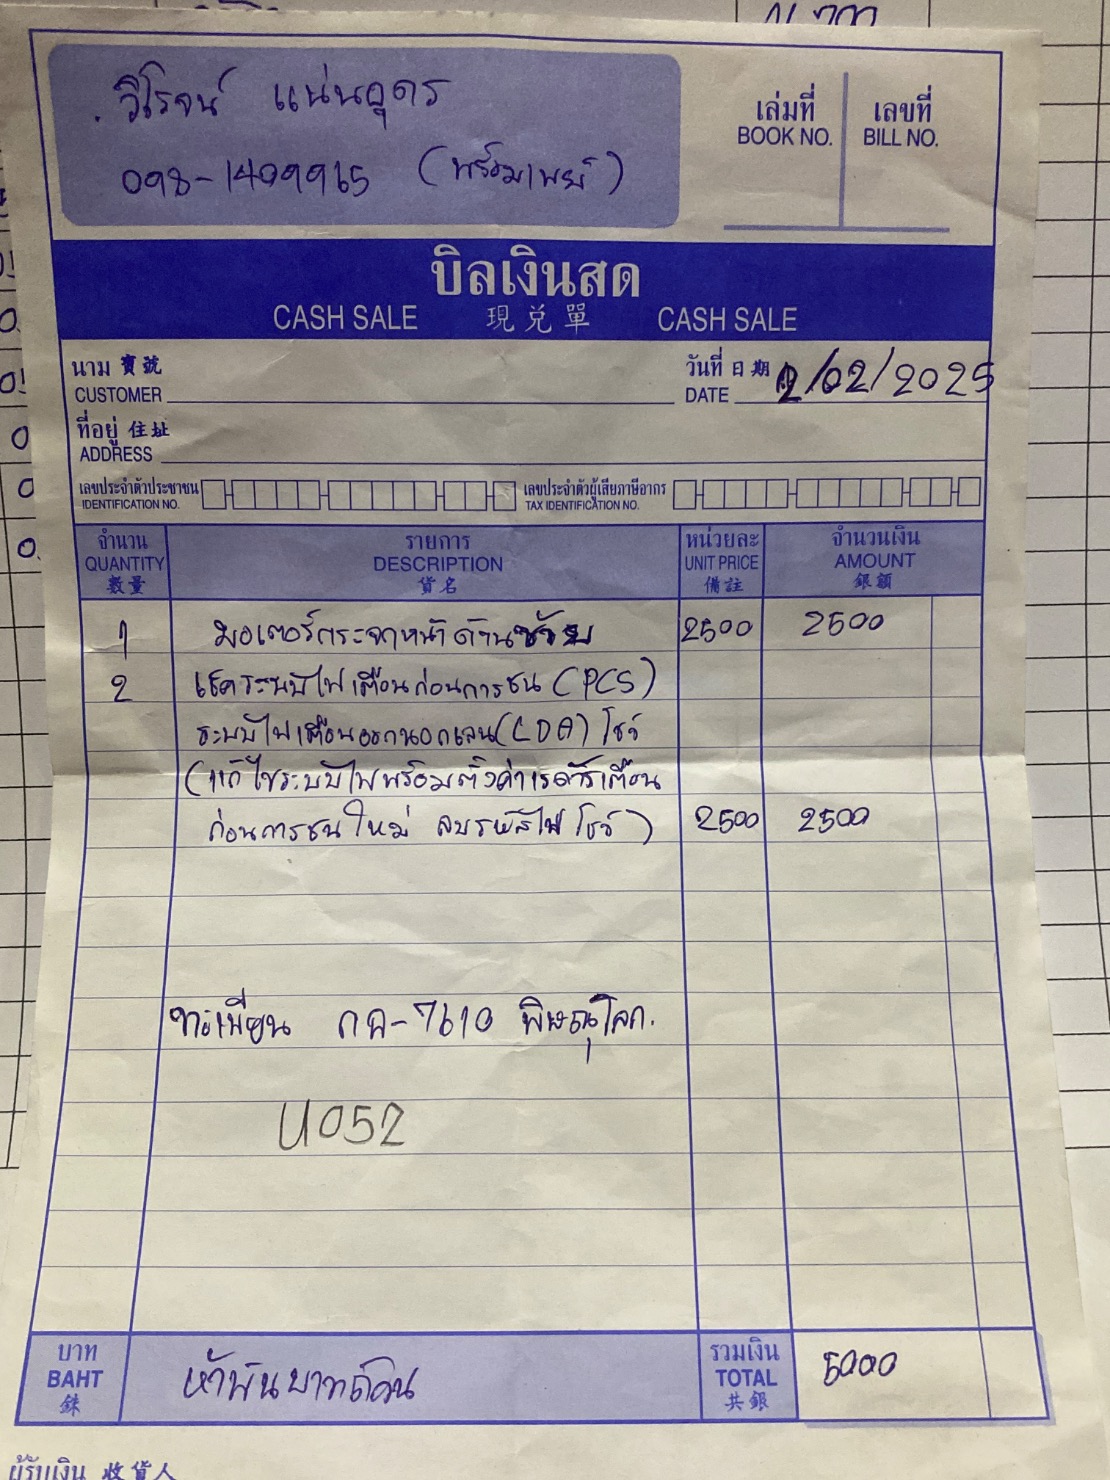 วิโรจน์ แน่นอุดร
098-1409965 (พร้อมเพย์)
เล่มที่ เลขที่
BOOK NO. BILL NO.
บิลเงินสด
CASH SALE 現兌單 CASH SALE
นาม 寶號
CUSTOMER
วันที่ 日期
DATE 2/02/2025
ที่อยู่ 住址
ADDRESS
เลขประจำตัวประชาชน เลขประจำตัวผู้เสียภาษีอากร
IDENTIFICATION NO. TAX IDENTIFICATION NO.
จำนวน รายการ หน่วยละ จำนวนเงิน
QUANTITY DESCRIPTION UNIT PRICE AMOUNT
數量 貨名 備註 銀額
1 มอเตอร์กระจกหน้าด้านซ้าย 2500 2500
2 เช็คระบบไฟเตือนก่อนการชน (PCS)
ระบบไฟเตือนออกนอกเลน (LDA) โชว์
(แก้ไขระบบไฟพร้อมตั้งค่าเรดาร์เตือน
ก่อนการชนใหม่ ลบรหัสไฟโชว์) 2500 2500
ทะเบียน กฉ-7610 พิษณุโลก.
U052
บาท รวมเงิน
BAHT ห้าพันบาทถ้วน TOTAL 5000
銖 共銀
ผู้รับเงิน 收貨人